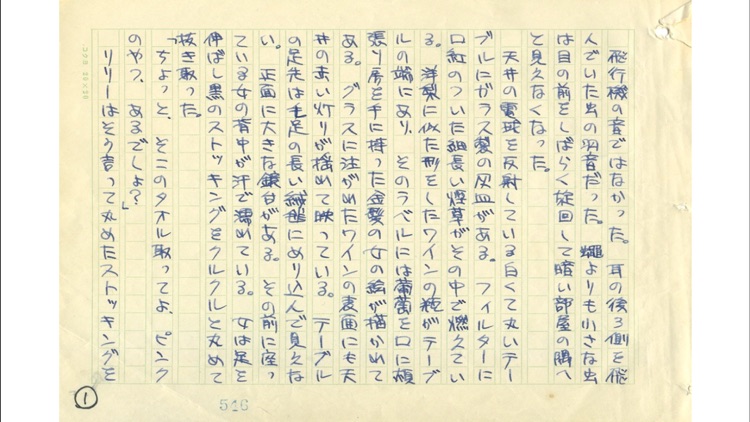 飛行機の音ではなかった。耳の後ろ側を飛
んでいた虫の羽音だった。蠅よりも小さな虫
は目の前をしばらく旋回して暗い部屋の隅へ
と見えなくなった。
天井の電球を反射している白くて丸いテー
ブルにガラス製の灰皿がある。フィルターに
口紅のついた細長い煙草がその中で燃えてい
る。洋梨に似た形をしたワインの瓶がテーブ
ルの端にあり、そのラベルには葡萄を口に頬
張り房を手に持った金髪の女の絵が描かれて
ある。グラスに注がれたワインの表面にも天
井の赤い灯りが揺れて映っている。テーブル
の足先は毛足の長い絨毯にめり込んで見えな
い。正面に大きな鏡台がある。その前に座っ
ている女の背中が汗で濡れている。女は足を
伸ばし黒のストッキングをクルクルと丸めて
抜き取った。
「ちょっと、そこのタオル取ってよ、ピンク
のやつ、あるでしょ?」
リリーはそう言って丸めたストッキングを
①
546